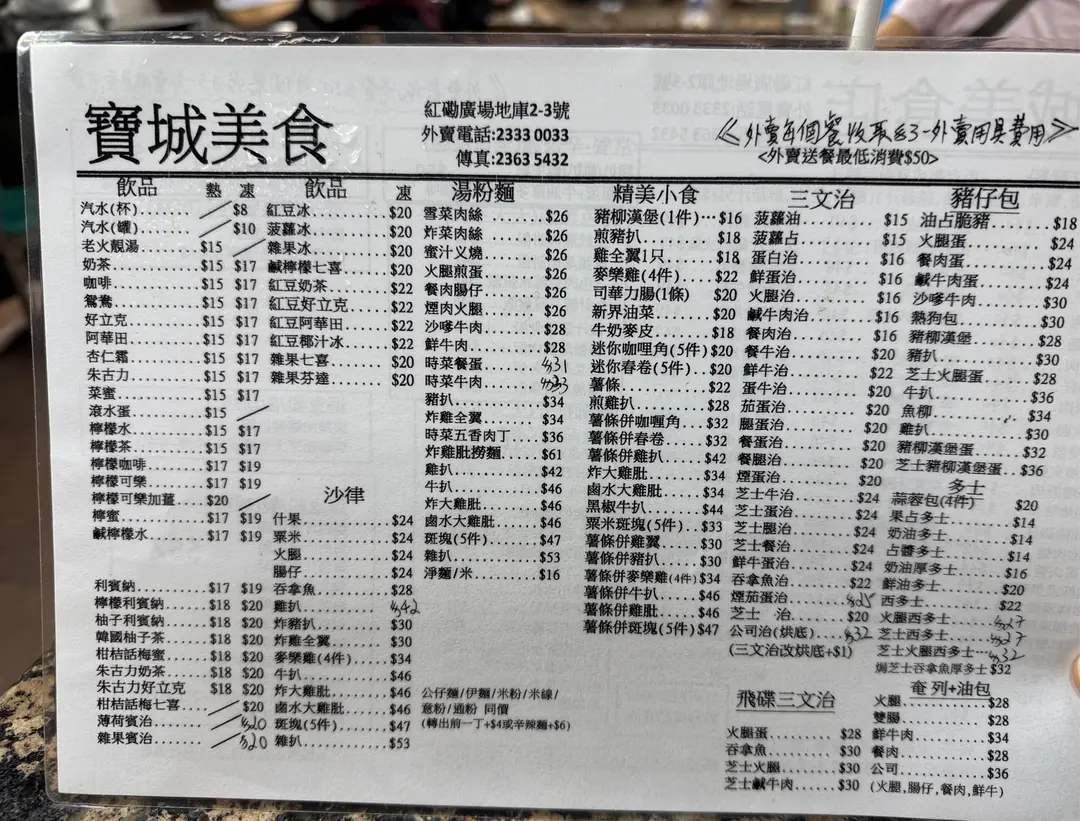 寶城美食
紅磡廣場地庫2-3號
外賣電話:2333 0033
傳真:2363 5432
≪外賣每個餐收取$3-外賣用具費用≫
<外賣送餐最低消費$50>
飲品 熱 凍
汽水(杯)...... ／ $8
汽水(罐)...... ／ $10
老火靚湯...... $15 ／
奶茶...... $15 $17
咖啡...... $15 $17
鴛鴦...... $15 $17
好立克...... $15 $17
阿華田...... $15 $17
杏仁霜...... $15 $17
朱古力...... $15 $17
菜蜜...... $15 $17
滾水蛋...... $15 ／
檸檬水...... $15 $17
檸檬茶...... $15 $17
檸檬咖啡...... $17 $19
檸檬可樂...... $17 $19
檸檬可樂加薑... $20 ／
檸蜜...... $17 $19
鹹檸檬水...... $17 $19
利賓納...... $17 $19
檸檬利賓納...... $18 $20
柚子利賓納...... $18 $20
韓國柚子茶...... $18 $20
柑桔話梅蜜...... $18 $20
朱古力奶茶...... $18 $20
朱古力好立克 $18 $20
柑桔話梅七喜... ／ $20
薄荷賓治...... ／ $20
雜果賓治...... ／ $20
飲品 凍
紅豆冰...... $20
菠蘿冰...... $20
雜果冰...... $20
鹹檸檬七喜...... $20
紅豆奶茶...... $22
紅豆好立克...... $22
紅豆阿華田...... $22
紅豆椰汁冰...... $22
雜果七喜...... $20
雜果芬達...... $20
沙律
什果...... $24
粟米...... $24
火腿...... $24
腸仔...... $24
吞拿魚...... $28
雞扒...... $42
炸豬扒...... $30
炸雞全翼...... $30
麥樂雞(4件)...... $34
牛扒...... $46
炸大雞肶...... $46
鹵水大雞肶...... $46
斑塊(5件)...... $47
雜扒...... $53
湯粉麵
雪菜肉絲...... $26
炸菜肉絲...... $26
蜜汁义燒...... $26
火腿煎蛋...... $26
餐肉腸仔...... $26
煙肉火腿...... $26
沙嗲牛肉...... $28
鮮牛肉...... $28
時菜餐蛋...... $31
時菜牛肉...... $33
豬扒...... $34
炸雞全翼...... $34
時菜五香肉丁... $36
炸雞肶撈麵...... $61
雞扒...... $42
牛扒...... $46
炸大雞肶...... $46
鹵水大雞肶...... $46
斑塊(5件)...... $47
雜扒...... $53
淨麵/米...... $16
公仔麵/伊麵/米粉/米線/
意粉/通粉 同價
(轉出前一丁+$4或辛辣麵+$6)
精美小食
豬柳漢堡(1件)... $16
煎豬扒...... $18
雞全翼1只...... $18
麥樂雞(4件)...... $22
司華力腸(1條) $20
新界油菜...... $20
牛奶麥皮...... $18
迷你咖喱角(5件) $20
迷你春卷(5件)... $20
薯條...... $22
煎雞扒...... $28
薯條併咖喱角... $32
薯條併春卷...... $32
薯條併雞扒...... $42
炸大雞肶...... $34
鹵水大雞肶...... $34
黑椒牛扒...... $44
粟米斑塊(5件)... $33
薯條併雞翼...... $30
薯條併豬扒...... $30
薯條併麥樂雞(4件) $34
薯條併牛扒...... $46
薯條併雞肶...... $46
薯條併斑塊(5件) $47
三文治
菠蘿油...... $15
菠蘿占...... $15
蛋白治...... $16
鮮蛋治...... $16
火腿治...... $16
鹹牛肉治...... $16
餐肉治...... $16
餐牛治...... $20
鮮牛治...... $22
蛋牛治...... $20
茄蛋治...... $20
腿蛋治...... $20
餐蛋治...... $20
餐腿治...... $20
煙蛋治...... $20
芝士牛治...... $24
芝士蛋治...... $24
芝士腿治...... $24
芝士餐治...... $24
鮮牛蛋治...... $24
吞拿魚治...... $22
煙茄蛋治...... $25
芝士 治...... $20
公司治(烘底)... $32
(三文治改烘底+$1)
飛碟三文治
火腿蛋...... $28
吞拿魚...... $30
芝士火腿...... $30
芝士鹹牛肉...... $30
豬仔包
油占脆豬...... $18
火腿蛋...... $24
餐肉蛋...... $24
鹹牛肉蛋...... $24
沙嗲牛肉...... $30
熱狗包...... $30
豬柳漢堡...... $28
豬扒...... $30
芝士火腿蛋...... $28
牛扒...... $36
魚柳...... $34
雞扒...... $30
豬柳漢堡蛋...... $32
芝士豬柳漢堡蛋... $36
多士
蒜蓉包(4件) $20
果占多士...... $14
奶油多士...... $14
占醬多士...... $14
奶油厚多士...... $16
鮮油多士...... $20
西多士...... $22
火腿西多士...... $27
芝士西多士...... $27
芝士火腿西多士... $32
焗芝士吞拿魚厚多士 $32
奄列+油包
火腿...... $28
雙腸...... $28
鮮牛肉...... $34
餐肉...... $28
公司...... $36
(火腿,腸仔,餐肉,鮮牛)